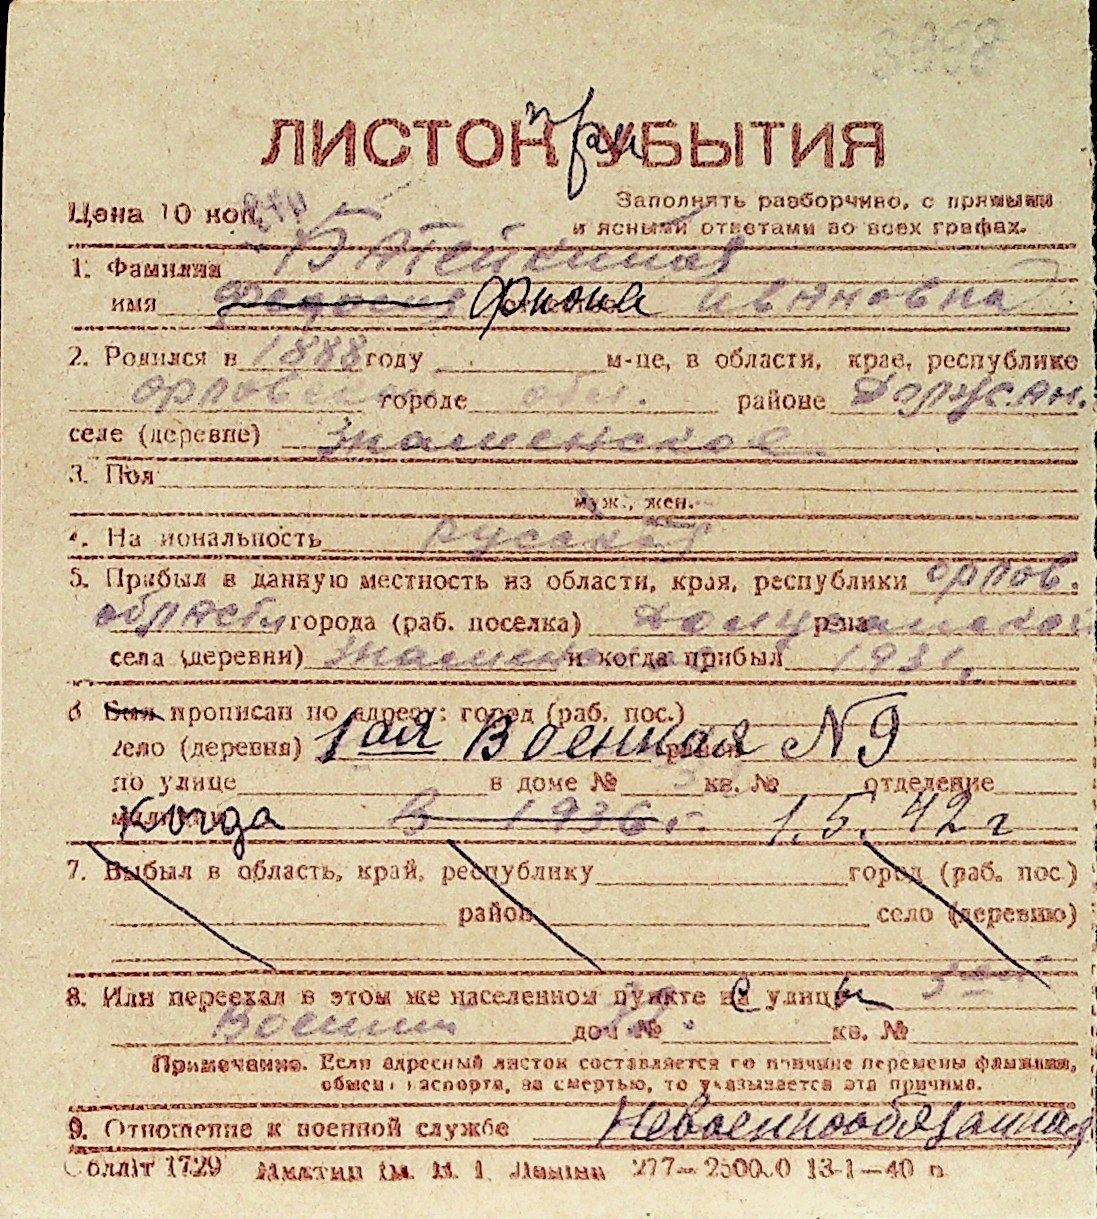 3998
ЛИСТОК при УБЫТИЯ
Цена 10 коп.
Заполнять разборчиво, с прямыми
и ясными ответами во всех графах.
1. Фамилия Батейкиная
имя Федосия Фиона Ивановна
2. Родился в 1888 году м-це, в области, крае, республике
орловской городе обл. районе Долусан.
селе (деревне) Знаменское
3. Пол
муж., жен.
4. Национальность русская
5. Прибыл в данную местность из области, края, республики орлов.
области города (раб. поселка) р-на
села (деревни) Знаменское и когда прибыл 1931.
6 Был прописан по адресу: город (раб. пос.)
село (деревня) 1ая Военная район №9
по улице в доме № кв. № отделение
милиции Когда В 1936 г. 1.5.42 г
7. Выбыл в область, край, республику город (раб. пос.)
район село (деревню)
8. Или переехал в этом же населенном пункте с улицы 3ей
Военной дом № кв. №
Примечание. Если адресный листок составляется по причине перемены фамилии,
обмена паспорта, за смертью, то указывается эта причина.
9. Отношение к военной службе Невоеннообязанная
Обллит 1729 им. В. И. Ленина 277—250000 13-1—40 г.